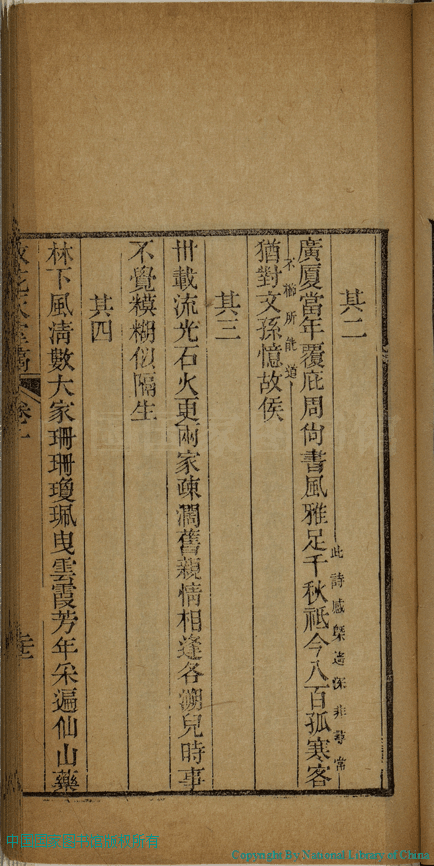 其二
廣厦當年覆庇周尙書風雅足千秋祗今八百孤寒客
此詩感槩遥深非尋常
不櫛所能道
猶對文孫憶故侯
其三
卅載流光石火更兩家疎濶舊親情相逢各溯兒時事
不覺糢糊似隔生
其四
林下風淸數大家珊珊瓊珮曳雲霞芳年采遍仙山藥
Copyright By National Library of China